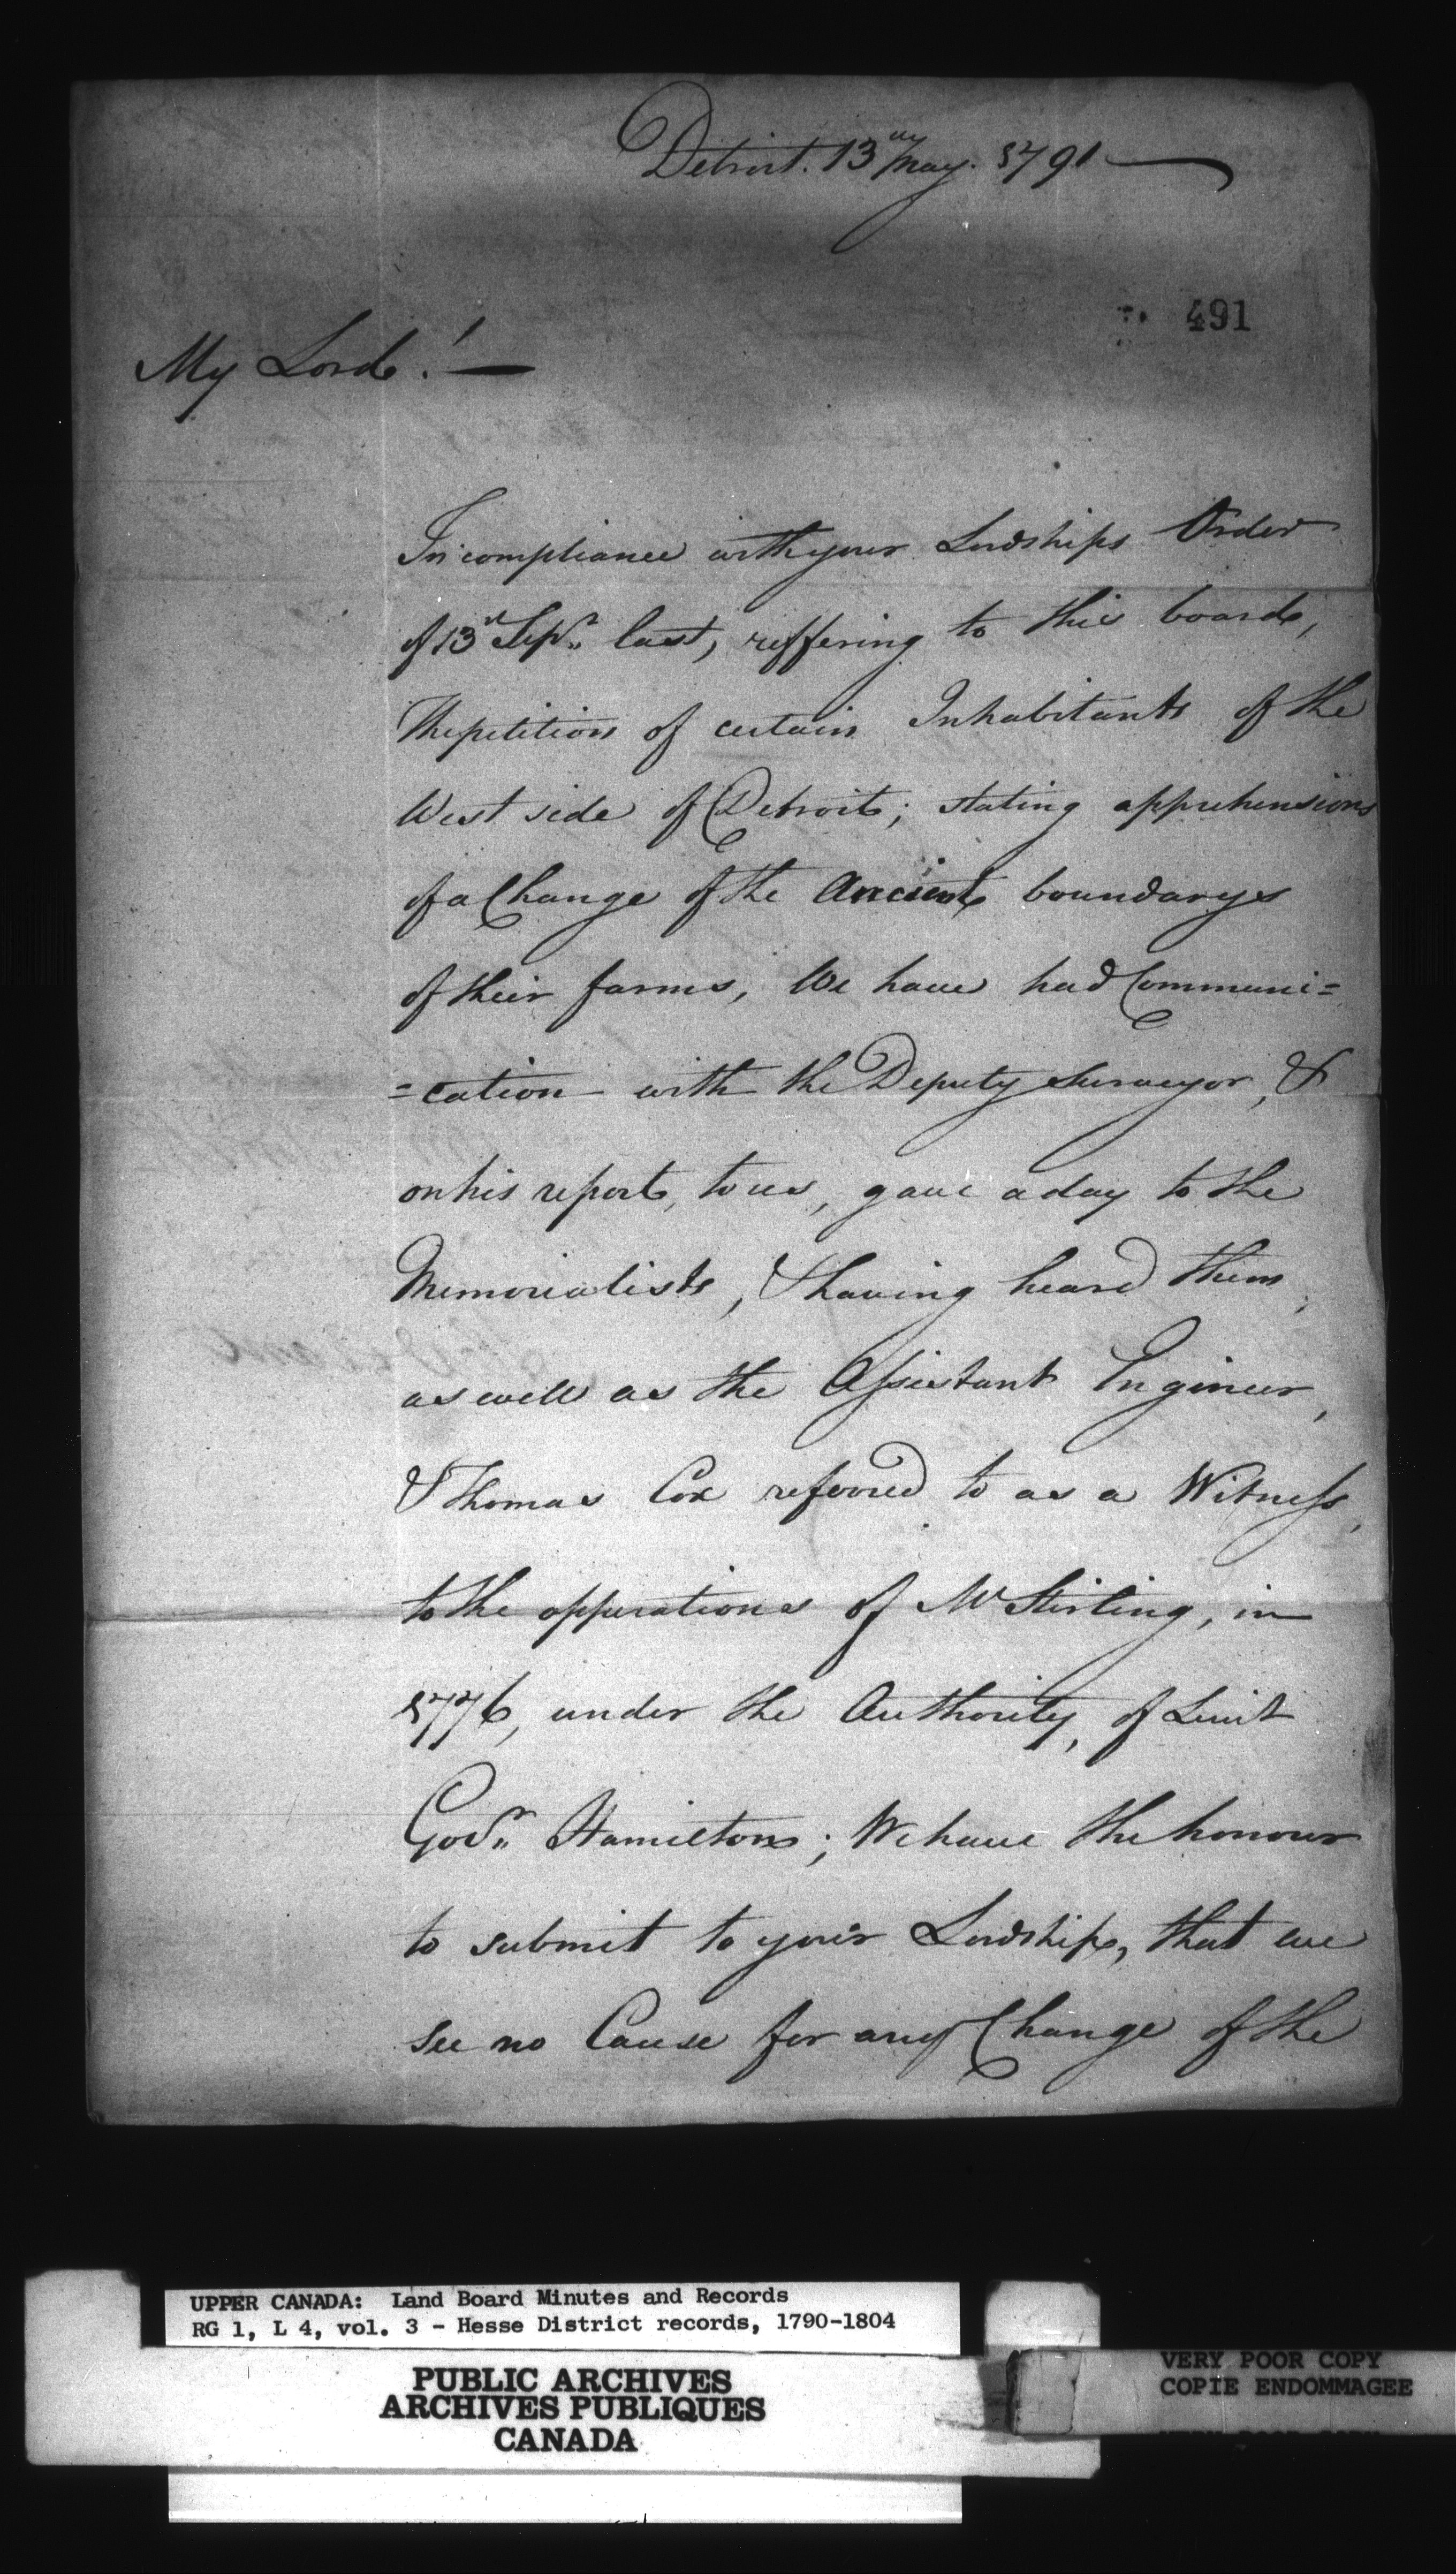 Detroit. 13th May. 1791
491
My Lord! —
In compliance with your Lordships Order
of 13th Sepr. last, reffering to this board,
The petition of certain Inhabitants of the
West side of Detroit; stating apprehensions
of a Change of the Ancient boundarys
of their farms, We have had Communi=
=cation with the Deputy Surveyor, &
on his report, to us, gave a day to the
Memorialists, & having heard them,
as well as the Assistant Engineer,
& Thomas Cox referred to as a Witness,
to the opperations of Mr Stirling, in
1776, under the Authority, of Leiut
Govr. Hamilton; We have the honour
to submit to your Lordship, that we
see no Cause for any Change of the
UPPER CANADA: Land Board Minutes and Records
RG 1, L 4, vol. 3 - Hesse District records, 1790-1804
PUBLIC ARCHIVES
ARCHIVES PUBLIQUES
CANADA
VERY POOR COPY
COPIE ENDOMMAGEE